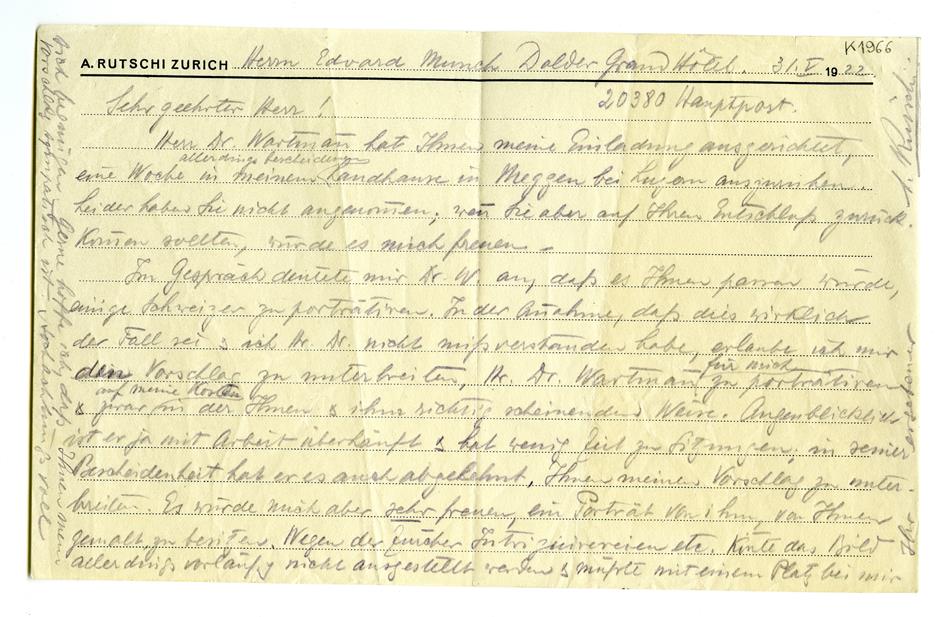 K1966
A. RUTSCHI ZURICH Herrn Edvard Munch Dolder Grand Hôtel. 31.V 1922
20380 Hauptpost.
Sehr geehrter Herr!
Herr Dr. Wartmañ hat Ihnen meine Einladung ausgerichtet,
eine Woche in meinem allerdings bescheidenen Landhause in Meggen bei Luzern auszuruhen.
Leider haben Sie nicht angenom̄en; weñ Sie aber auf Ihren Entschluß zurück
kom̄en sollten, würde es mich freuen –
Im Gespräch deutete mir Dr. W. an, daß es Ihnen passen würde,
einige Schweizer zu porträtiren. In der Añahme, daß dies wirklich
der Fall sei & ich Hr. Dr. nicht mißverstanden habe, erlaube ich mir
den Vorschlag zu unterbreiten, Hr. Dr. Wartmañ für mich zu porträtiren
& zwar auf meine Kosten in der Ihnen & ihm richtig scheinenden Weise. Augenblicklich
ist er ja mit Arbeit überhäuft & hat wenig Zeit zu Sitzungen; in seiner
Bescheidenheit hat er es auch abgelehnt, Ihnen meinen Vorschlag zu unter-
breiten. Es würde mich aber sehr freuen, ein Porträt von ihm, von Ihnen
gemalt zu besitzen. Wegen der Zürcher etc. köñte das Bild
allerdings vorläufig nicht ausgestellt werden & müßte mit einem Platz bei mir
sich begnügen. Gerne hoffe ich daß Ihnen mein
Vorschlag sympathisch ist. Hochachtungsvoll
Ihr ergebener
A. Rütschi.